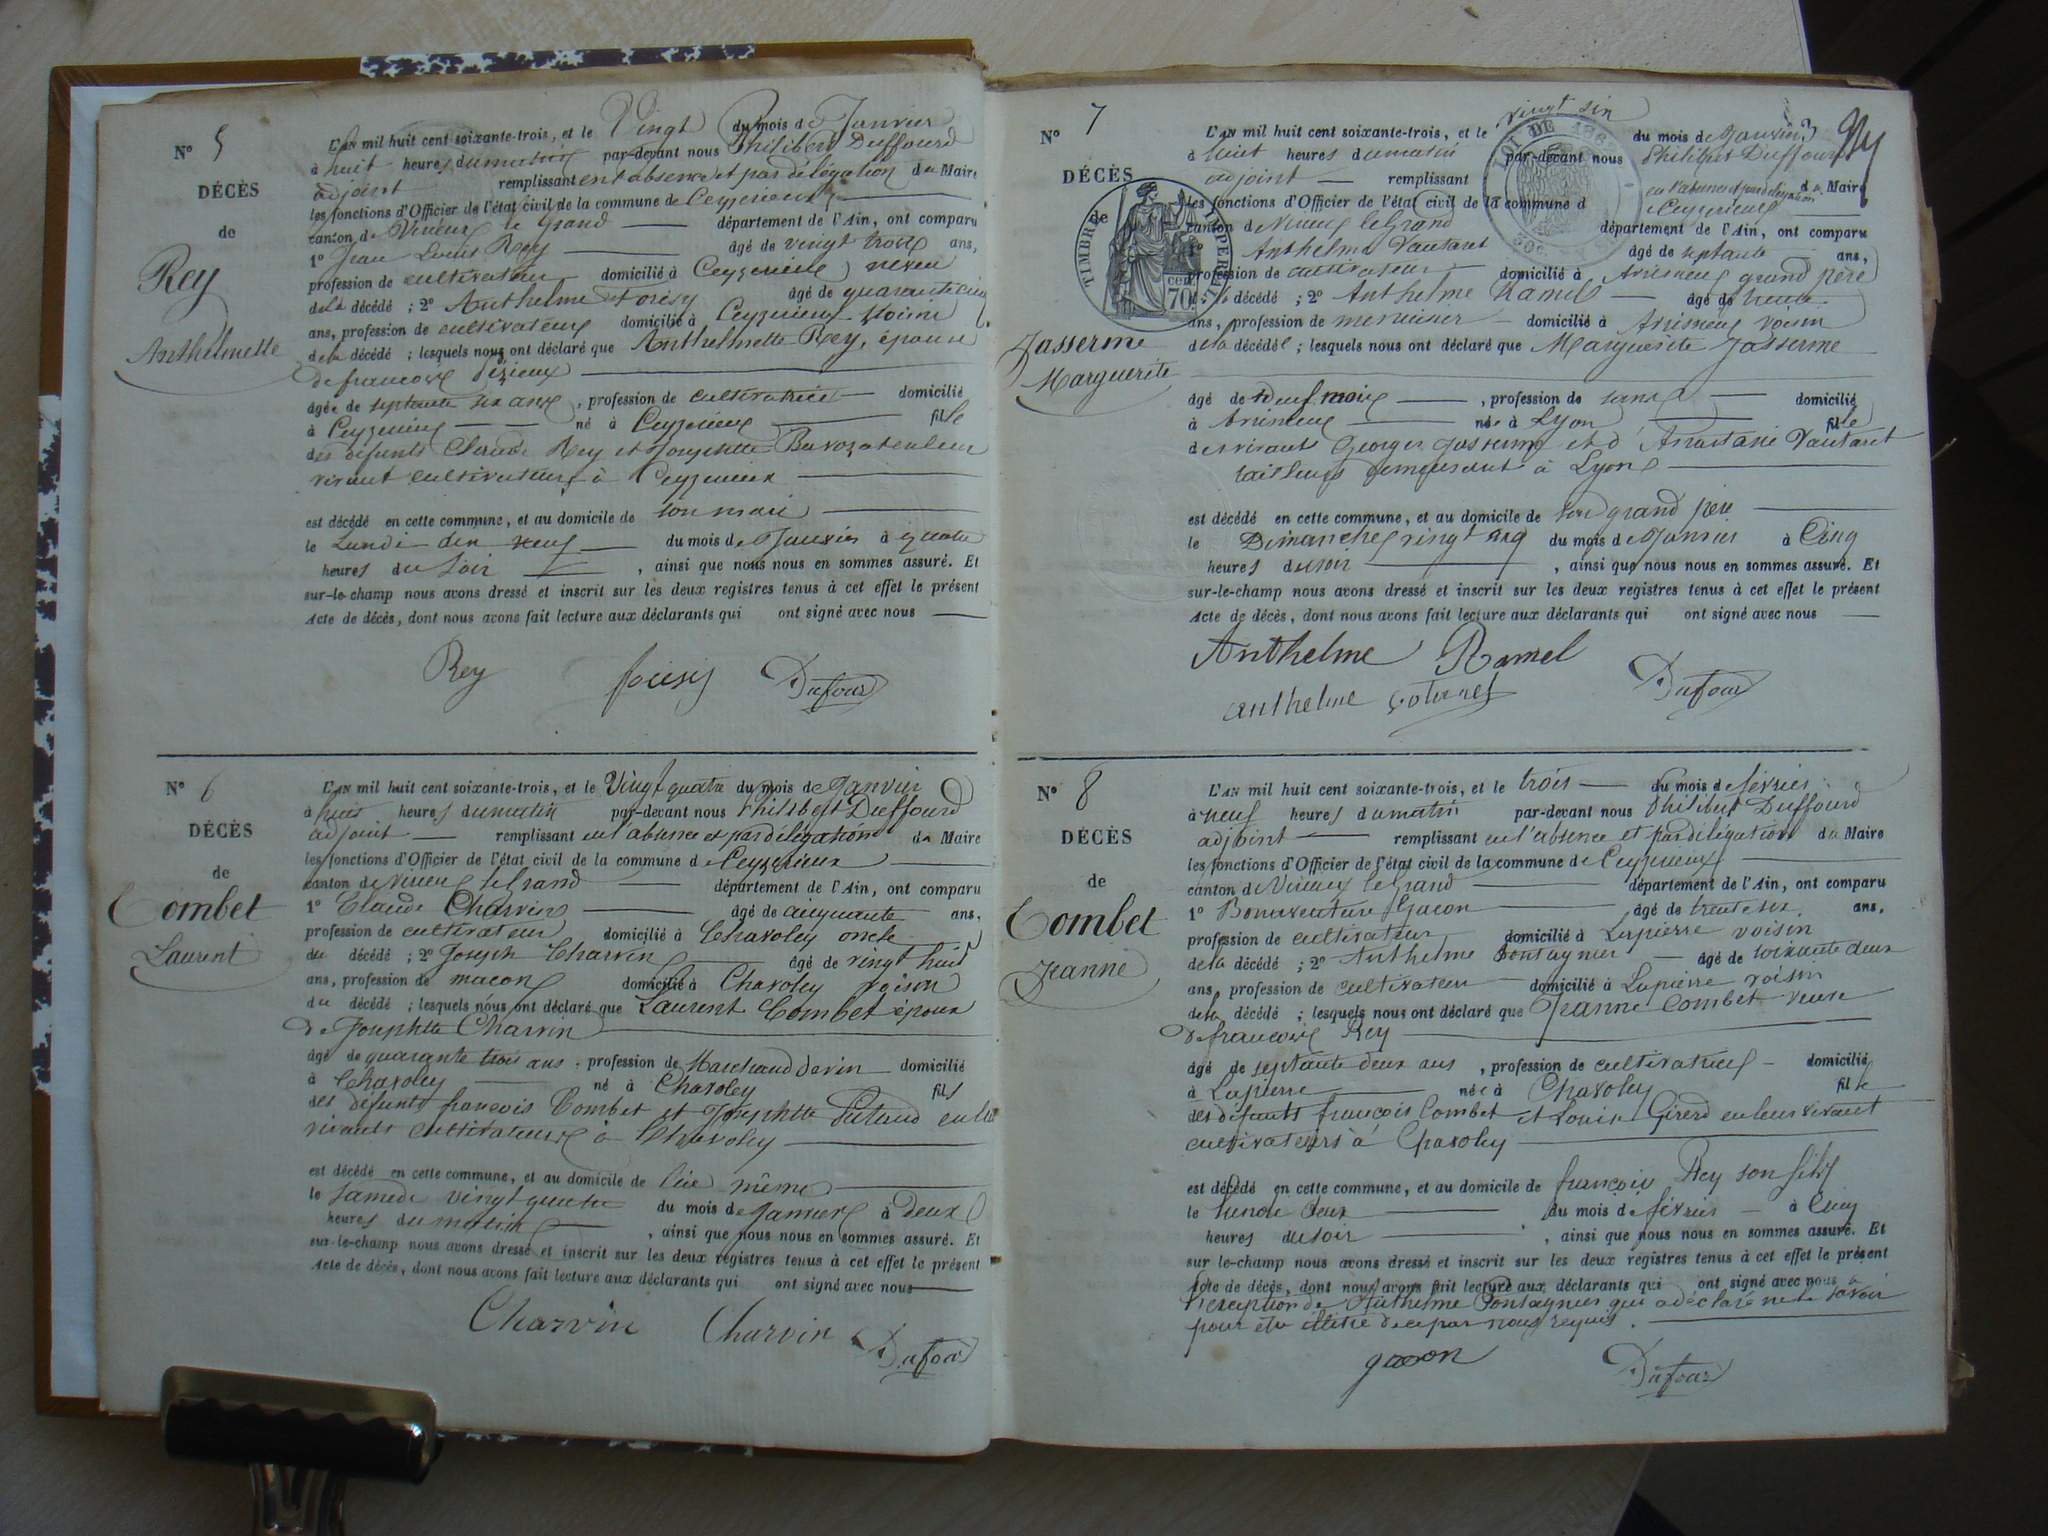 N° 5
DÉCÈS
de
Rey
Anthelmette
L'AN mil huit cent soixante-trois, et le Vingt du mois de Janvier
à huit heures du matin par-devant nous Philibert Duffourd
adjoint remplissant en l'absence et par délégation du Maire
les fonctions d'Officier de l'état civil de la commune de Ceyzerieux
canton de Virieux le Grand département de l'Ain, ont comparu
1° Jean Louis Rey âgé de vingt trois ans,
profession de cultivateur domicilié à Ceyzerieux neveu
de la décédé ; 2° Anthelme âgé de quarante cinq
ans, profession de cultivateur domicilié à Ceyzerieux voisin
de la décédé ; lesquels nous ont déclaré que Anthelmette Rey, épouse
de françois
âgée de septante six ans, profession de cultivatrice domicilié
à Ceyzerieux né à Ceyzerieux fille
des défunts Claude Rey et Josephtte en leur
vivant cultivateurs à Ceyzerieux
est décédé en cette commune, et au domicile de son mari
le Lundi dix neuf du mois de Janvier à quatre
heures du soir , ainsi que nous nous en sommes assuré. Et
sur-le-champ nous avons dressé et inscrit sur les deux registres tenus à cet effet le présent
Acte de décès, dont nous avons fait lecture aux déclarants qui ont signé avec nous
Rey Dufour
N° 6
DÉCÈS
de
Combet
Laurent
L'AN mil huit cent soixante-trois, et le Vingt quatre du mois de Janvier
à huit heures du matin par-devant nous Philibert Duffourd
adjoint remplissant en l'absence et par délégation du Maire
les fonctions d'Officier de l'état civil de la commune de Ceyzerieux
canton de Virieux le Grand département de l'Ain, ont comparu
1° Claude Charvin âgé de cinquante ans,
profession de cultivateur domicilié à Chavoley oncle
du décédé ; 2° Joseph Charvin âgé de vingt huit
ans, profession de maçon domicilié à Chavoley voisin
du décédé ; lesquels nous ont déclaré que Laurent Combet époux
de Josephtte Charvin
âgé de quarante trois ans, profession de Marchand de vin domicilié
à Chavoley né à Chavoley fils
des défunts françois Combet et Josephtte en leur
vivants cultivateurs à Chavoley
est décédé en cette commune, et au domicile de lui même
le Samedi vingt quatre du mois de Janvier à deux
heures du matin , ainsi que nous nous en sommes assuré. Et
sur-le-champ nous avons dressé et inscrit sur les deux registres tenus à cet effet le présent
Acte de décès, dont nous avons fait lecture aux déclarants qui ont signé avec nous
Charvin Charvin Dufour
N° 7
DÉCÈS
de
Jasserme
Marguerite
TIMBRE IMPERIAL
70
LOI DE 1862
L'AN mil huit cent soixante-trois, et le vingt six du mois de Janvier
à huit heures du matin par-devant nous Philibert Duffourd
adjoint remplissant en l'absence et par délégation du Maire
les fonctions d'Officier de l'état civil de la commune de Ceyzerieux
canton de Virieux le Grand département de l'Ain, ont comparu
1° Anthelme Vautaret âgé de septante ans,
profession de cultivateur domicilié à Avrissieux grand père
de la décédé ; 2° Anthelme Ramel âgé de trente
ans, profession de menuisier domicilié à Avrissieux voisin
de la décédée ; lesquels nous ont déclaré que Marguerite Jasserme
âgé de neuf mois, profession de sans domicilié
à Avrissieux née à Lyon fille
de vivant Georges Jasserme et d'Anastasie Vautaret
tailleurs demeurant à Lyon
est décédé en cette commune, et au domicile de son grand père
le Dimanche vingt cinq du mois de Janvier à Cinq
heures du soir , ainsi que nous nous en sommes assuré. Et
sur-le-champ nous avons dressé et inscrit sur les deux registres tenus à cet effet le présent
Acte de décès, dont nous avons fait lecture aux déclarants qui ont signé avec nous
Anthelme Ramel
anthelme Dufour
N° 8
DÉCÈS
de
Combet
Jeanne
L'AN mil huit cent soixante-trois, et le trois du mois de février
à neuf heures du matin par-devant nous Philibert Duffourd
adjoint remplissant en l'absence et par délégation du Maire
les fonctions d'Officier de l'état civil de la commune de Ceyzerieux
canton de Virieux le Grand département de l'Ain, ont comparu
1° Bonaventure Gacon âgé de trente six ans,
profession de cultivateur domicilié à Lapierre voisin
de la décédé ; 2° Anthelme Pontagnier âgé de soixante deux
ans, profession de cultivateur domicilié à Lapierre voisin
de la décédé ; lesquels nous ont déclaré que Jeanne Combet veuve
de françois Rey
âgé de septante deux ans, profession de cultivatrice domicilié
à Lapierre née à Chavoley fille
des défunts françois Combet et Louise Girerd en leur vivant
cultivateurs à Chavoley
est décédé en cette commune, et au domicile de françois Rey son fils
le lundi deux du mois de février à Cinq
heures du soir , ainsi que nous nous en sommes assuré. Et
sur le champ nous avons dressé et inscrit sur les deux registres tenus à cet effet le présent
Acte de décès, dont nous avons fait lecture aux déclarants qui ont signé avec nous à
l'exception de Anthelme Pontagnier qui a déclaré ne le savoir
pour être illitré de ce par nous requis.
gacon Dufour